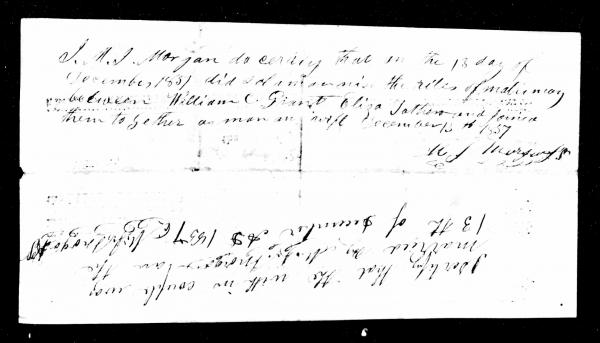 I. M. J. Morgan do certify that on the 13 day of
December 1857 did solemnise the rites of matrimony
between William C. Grant Eliza Tathem and joined
them together as man and wife December 13 th 1857
M J Morgan
I certify that the with in couple was
married by Morgan on the
13 th of December AD 1857